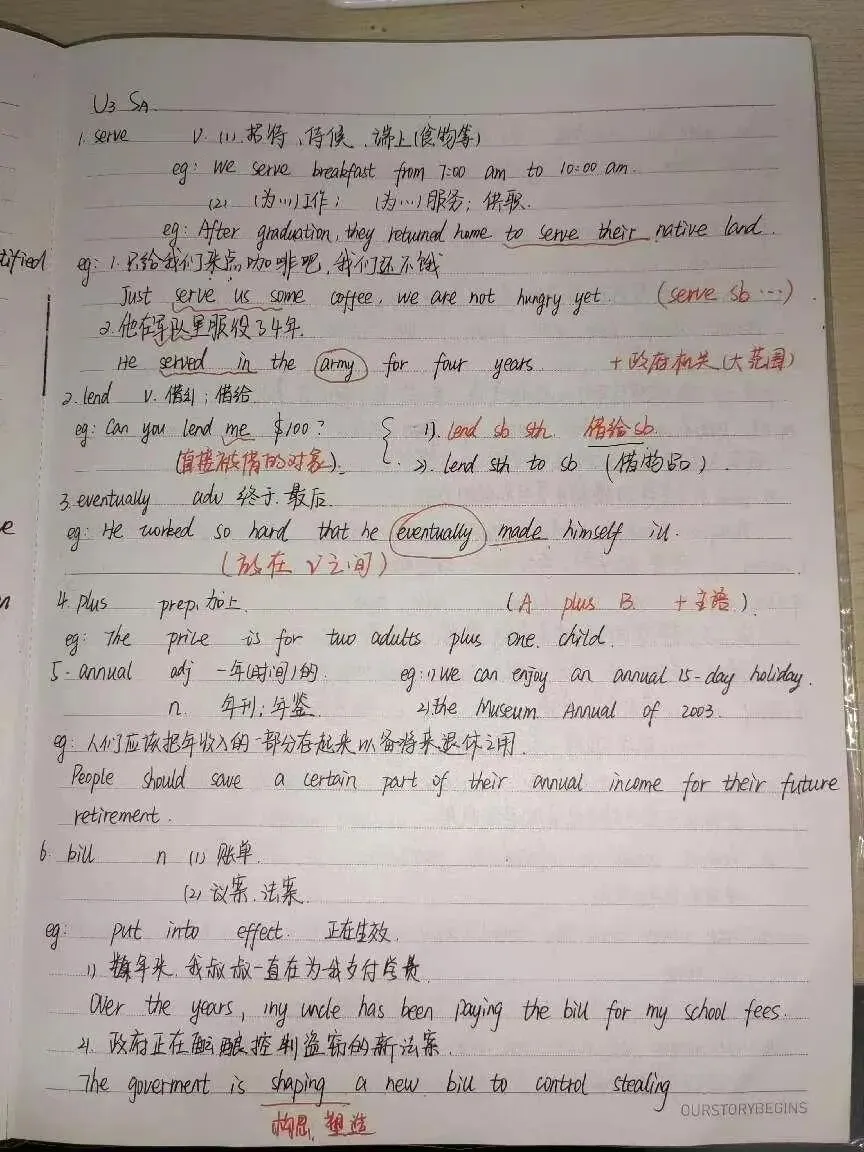 U3 SA.
1. serve v. (1) 招待、侍候、端上(食物等)
eg: We serve breakfast from 7:00 am to 10:00 am.
(2) (为…)工作; (为…)服务; 供职.
eg: After graduation, they returned home to serve their native land.
eg: 1. 只给我们来点咖啡吧, 我们还不饿
Just serve us some coffee, we are not hungry yet. (serve sb …)
2. 他在军队里服役了4年.
He served in the army for four years. +政府机关(大范围)
2. lend v. 借出; 借给
eg: Can you lend me $100? 1). lend sb sth. 借给sb.
(直接被借的对象). 2). lend sth to sb (借物品).
3. eventually adv 终于. 最后.
eg: He worked so hard that he eventually made himself ill.
(放在 v 之间)
4. plus prep. 加上. (A plus B. +主语)
eg: The price is for two adults plus one child.
5. annual adj 一年(时间)的. eg: 1) We can enjoy an annual 15-day holiday.
n. 年刊; 年鉴. 2) The Museum Annual of 2003.
eg: 人们应该把年收入的一部分存起来以备将来退休之用.
People should save a certain part of their annual income for their future
retirement.
6. bill n (1) 账单.
(2) 议案. 法案.
eg: put into effect. 正在生效.
1) 年来, 我叔叔一直在为我支付学费
Over the years, my uncle has been paying the bill for my school fees.
2). 政府正在酝酿控制盗窃的新法案.
The goverment is shaping a new bill to control stealing
构思, 塑造
OURSTORYBEGINS
tified
e
n